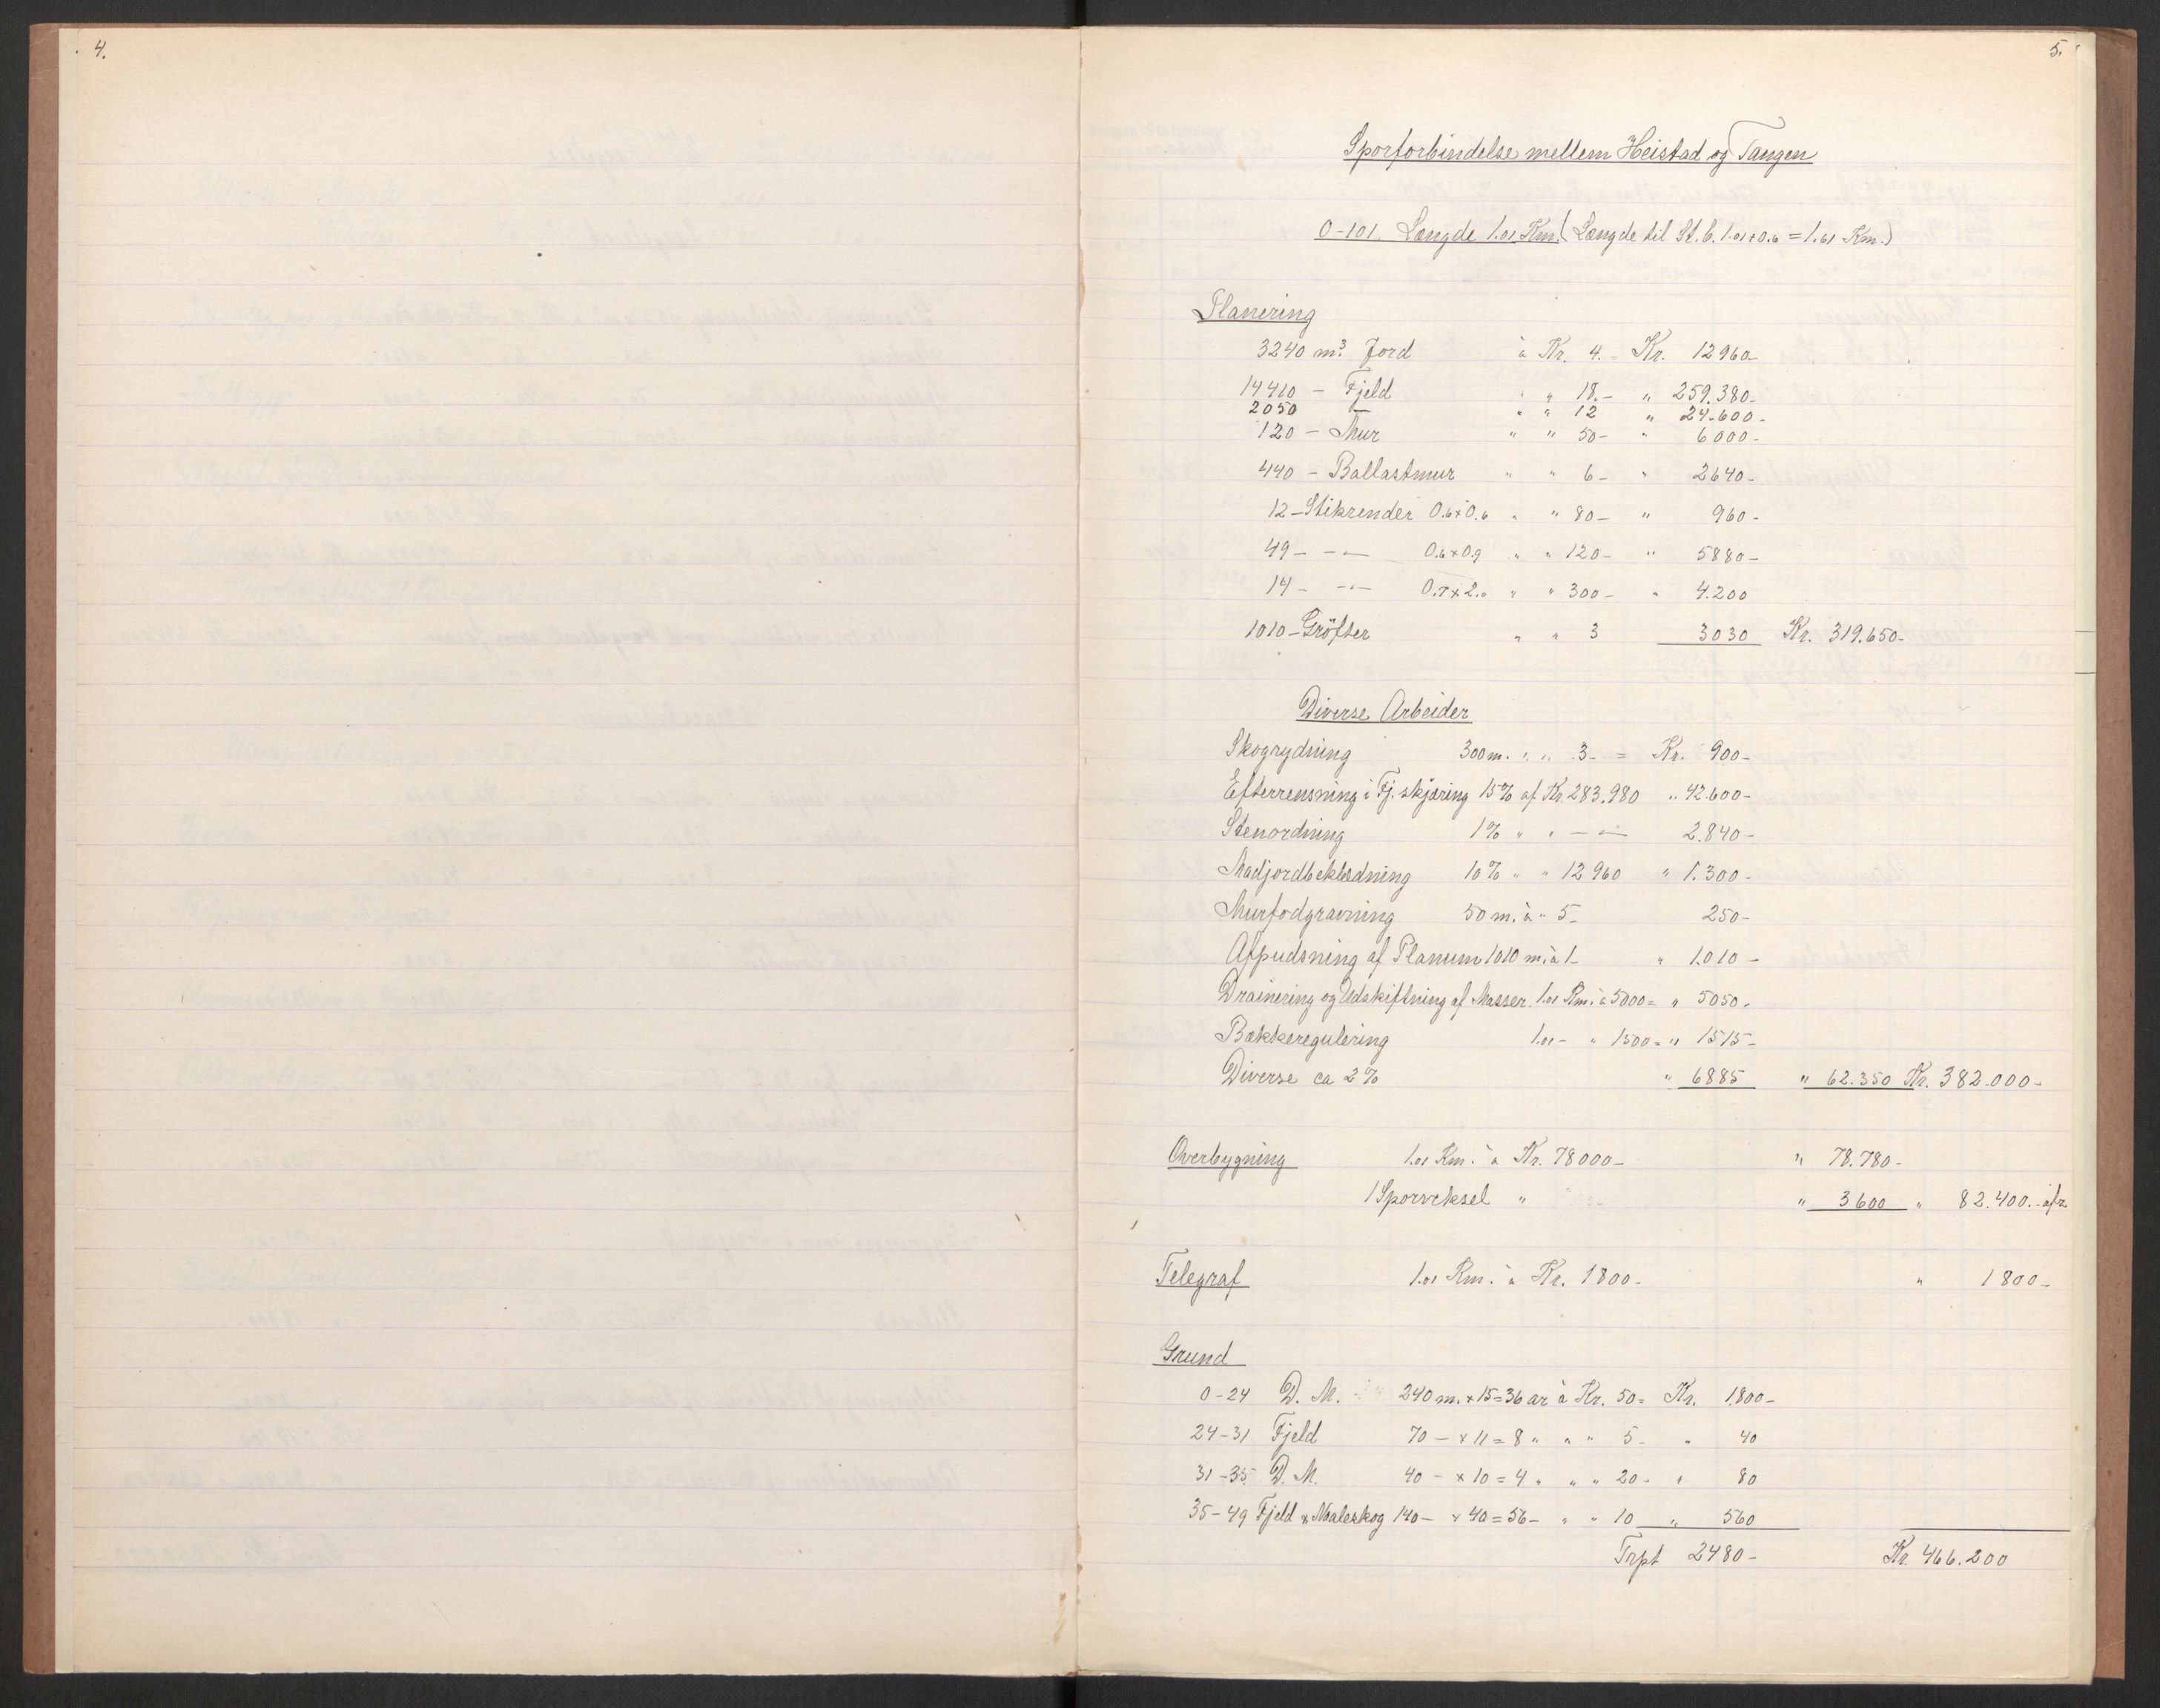 4.
5.
Sporforbindelse mellem Heistad og Tangen
0-101. Længde 1.01 Km. (Længde til St. b. 1.01+0.6 = 1.61 Km.)
Planering
3240 m³. Jord à Kr. 4.- Kr. 12960-
14410 - Fjeld " " 18.- " 259.380-
2050 — " " 12 " 24.600-
120 - Mur " " 50- " 6000-
440 - Ballastmur " " 6- " 2640-
12 - Stikrender 0.6x0.6 " " 80- " 960-
49 - -"- 0.6x0.9 " " 120- " 5880-
14 - -"- 0.7x2.0 " " 300- " 4.200
1010 - Gröfter " " 3 3030 Kr. 319.650-
Diverse Arbeider
Skogrydning 300 m. " " 3- = Kr. 900-
Efterrensning i Fj. skjæring 15% af Kr. 283.980 " 42.600-
Stenordning 1% " " -"- 2.840-
Madjordbeklædning 10% " " 12960 " 1.300-
Murfodgravning 50 m. à " 5- 250-
Afpudsning af Planum 1010 m. à 1- " 1.010-
Drainering og Udskiftning af Masser. 1.01 Km. à 5000= " 5050-
Bækkeregulering 1.01 - " 1500= " 1515-
Diverse ca 2% " 6885 " 62.350 Kr. 382.000-
Overbygning 1.01 Km. à Kr. 78000- " 78.780-
1 Sporveksel " " 3600 " 82.400.- afr.
Telegraf 1.01 Km. à Kr. 1800- " 1800-
Grund
0-24 D. M. 240 m. x 15=36 ar à Kr. 50= Kr. 1.800-
24-31 Fjeld 70 - x 11=8 " " " 5- " 40
31-35 D. M. 40 - x 10=4 " " " 20- " 80
35-49 Fjeld & Naaleskog 140- x 40=56- " " 10 " 560
Trpt 2480- Kr. 466.200